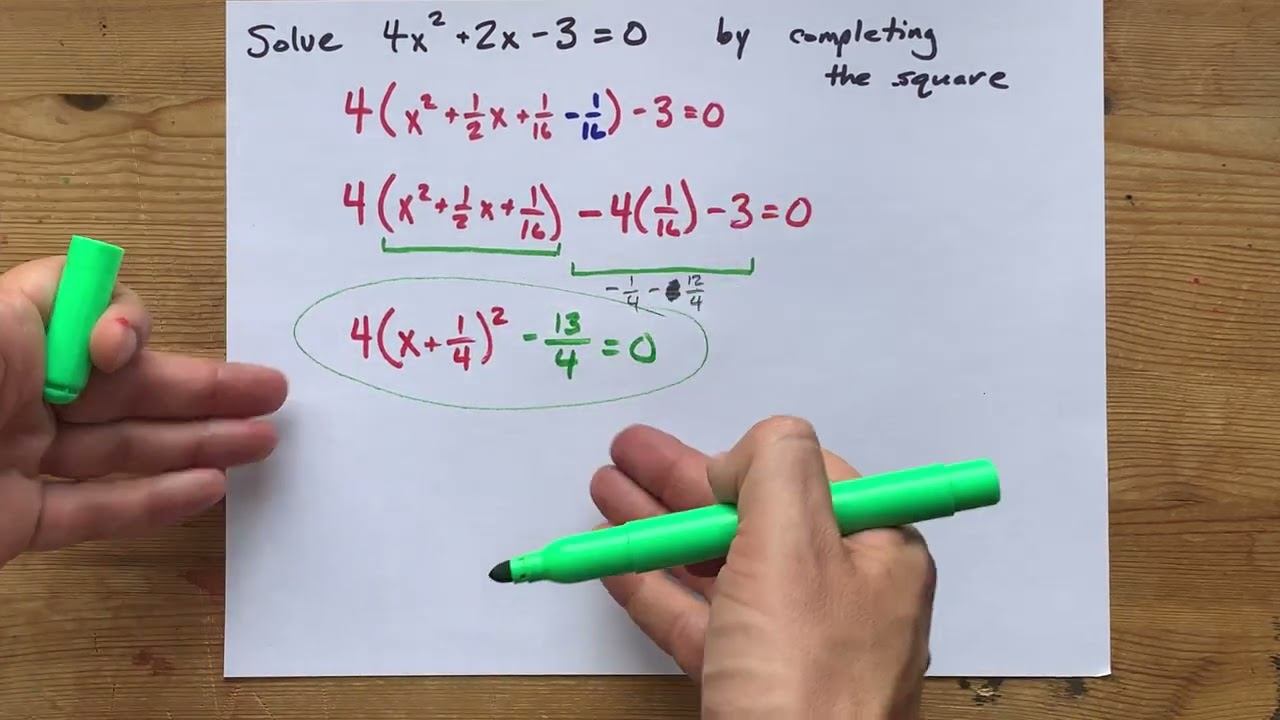 Solve 4x² + 2x - 3 = 0 by completing
the square
4(x² + 1/2 x + 1/16 - 1/16) - 3 = 0
4(x² + 1/2 x + 1/16) - 4(1/16) - 3 = 0
- 1/4 - 12/4
4(x + 1/4)² - 13/4 = 0